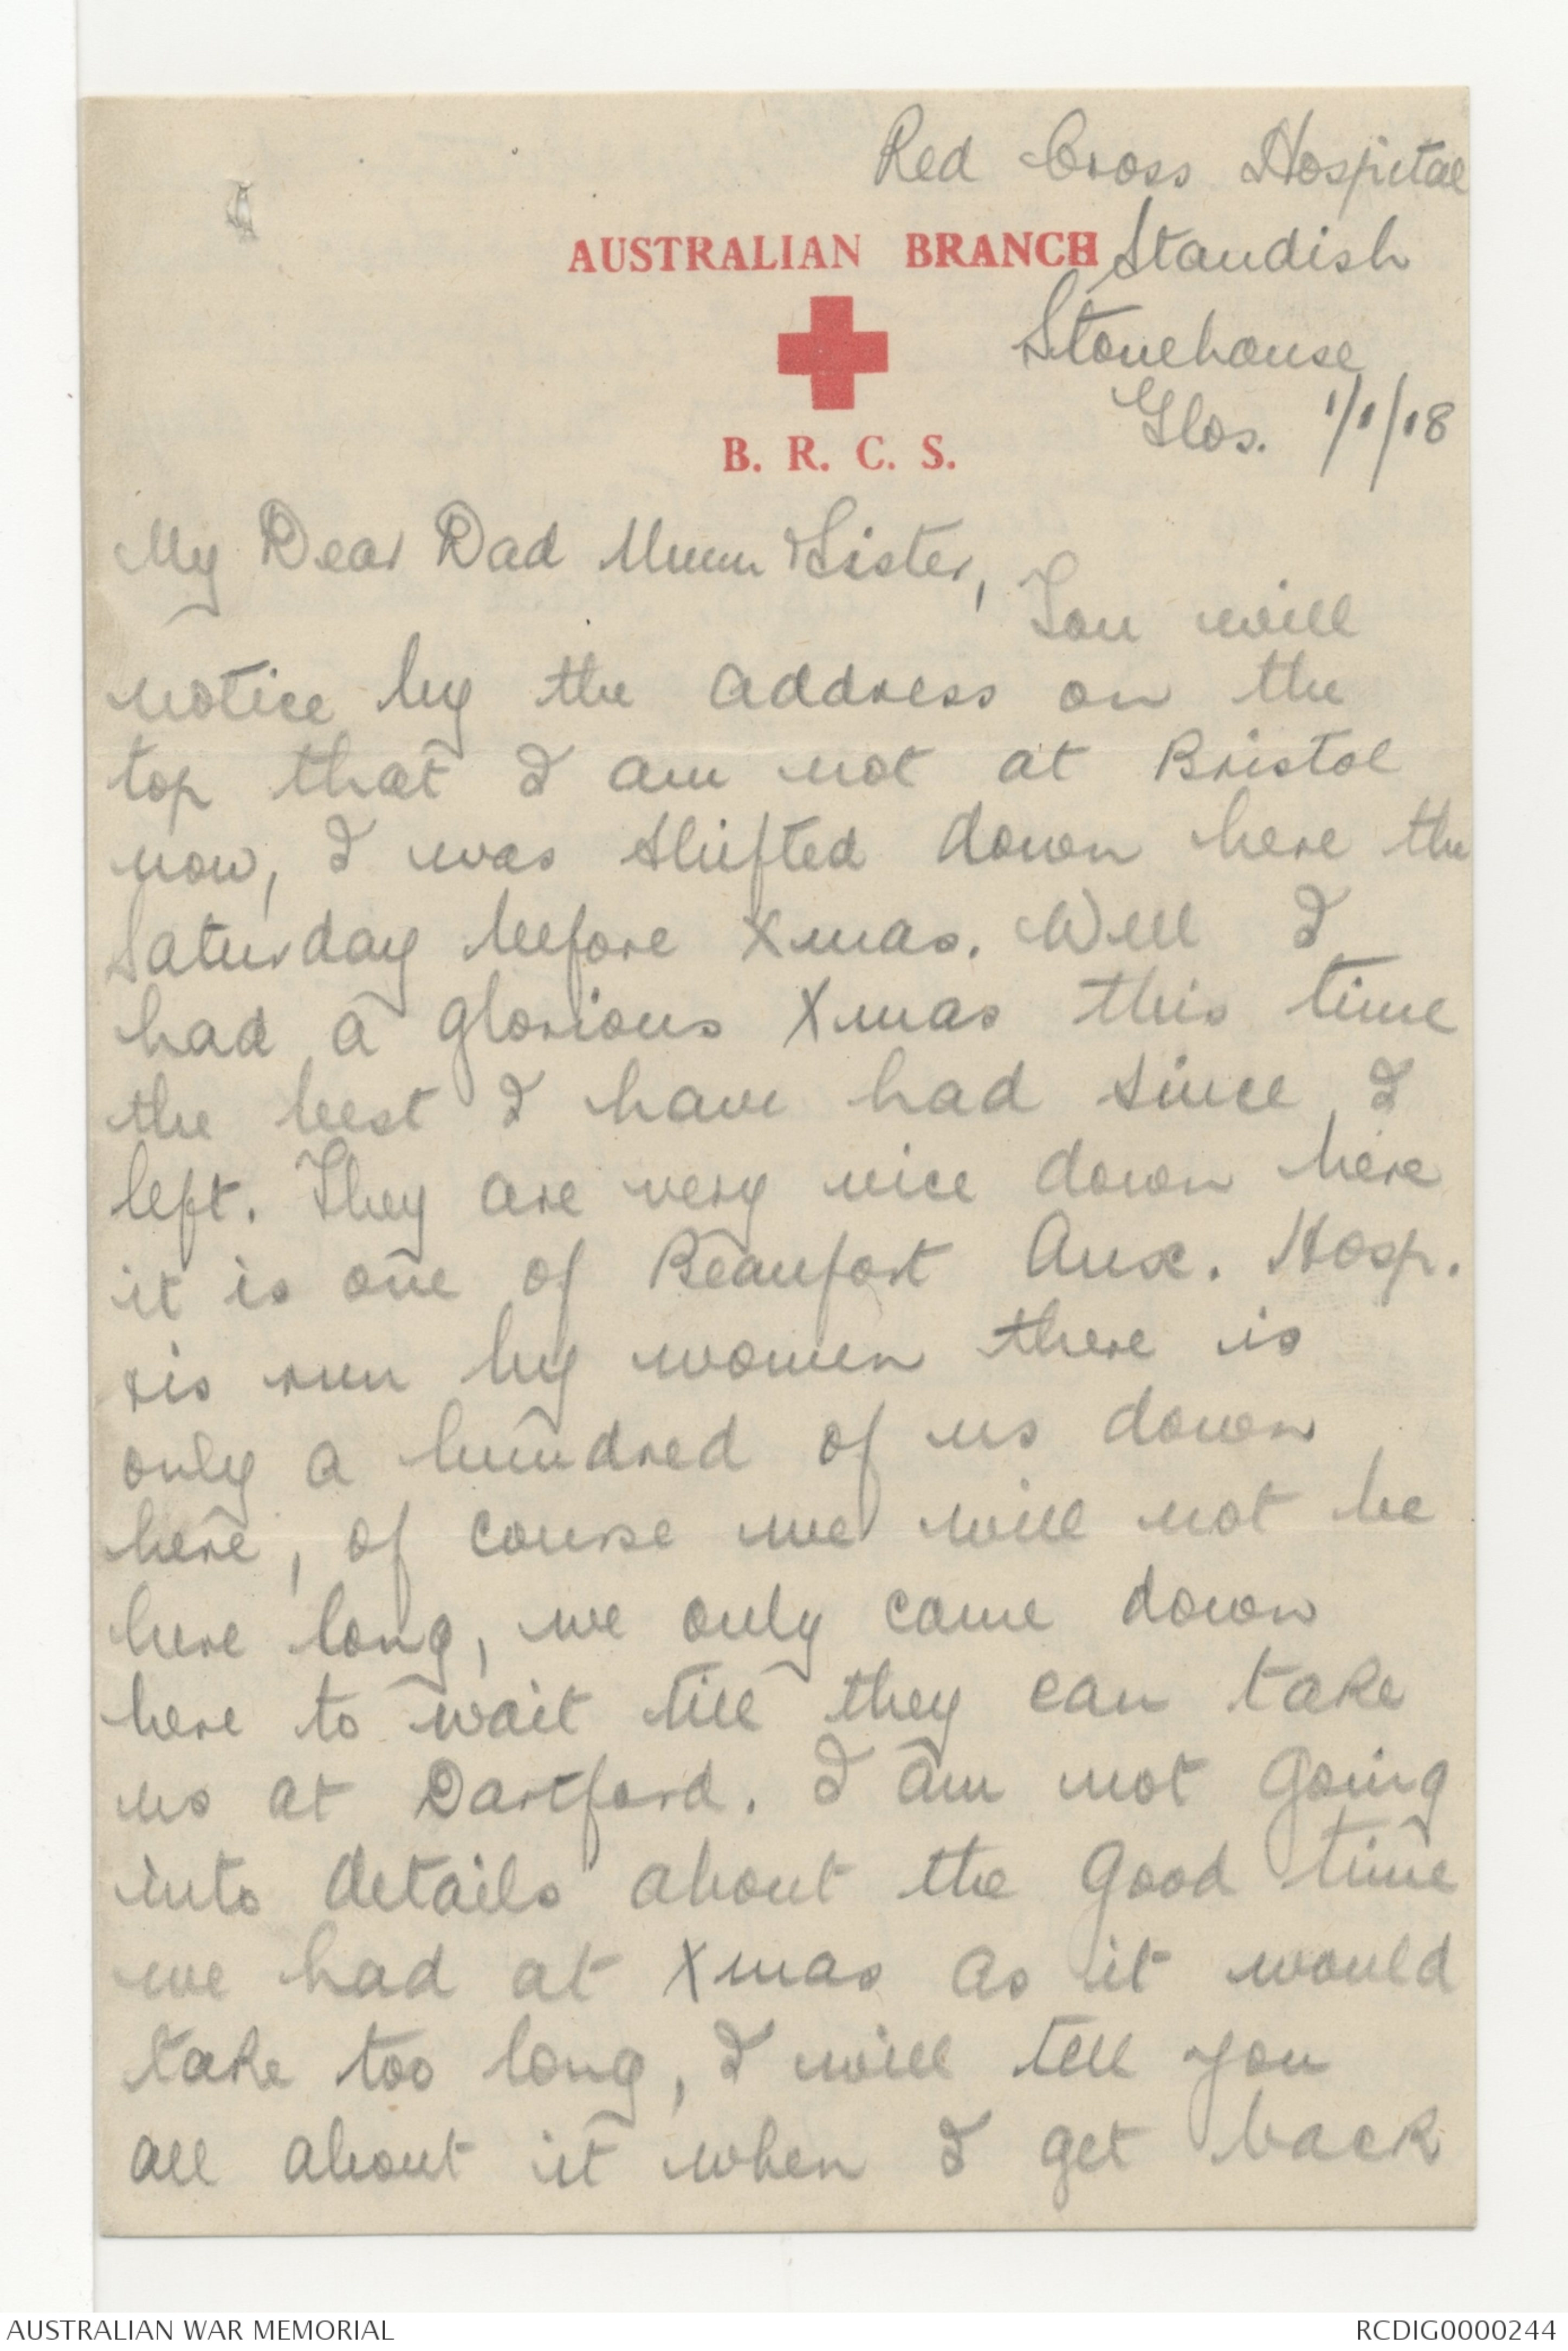 Red Cross Hospital
AUSTRALIAN BRANCH Standish
Stonehouse
Glos. 1/1/18
B. R. C. S.
My Dear Dad Mum & Sister,
You will
notice by the address on the
top that I am not at Bristol
now, I was shifted down here the
Saturday before Xmas. Well I
had a glorious Xmas this time
the best I have had since I
left. They are very nice down here
it is one of Beaufort Aux. Hosp.
& is run by women there is
only a hundred of us down
here, of course we will not be
here long, we only came down
here to wait till they can take
us at Dartford. I am not going
into details about the good time
we had at Xmas as it would
take too long, I will tell you
all about it when I get back
AUSTRALIAN WAR MEMORIAL
RCDIG0000244